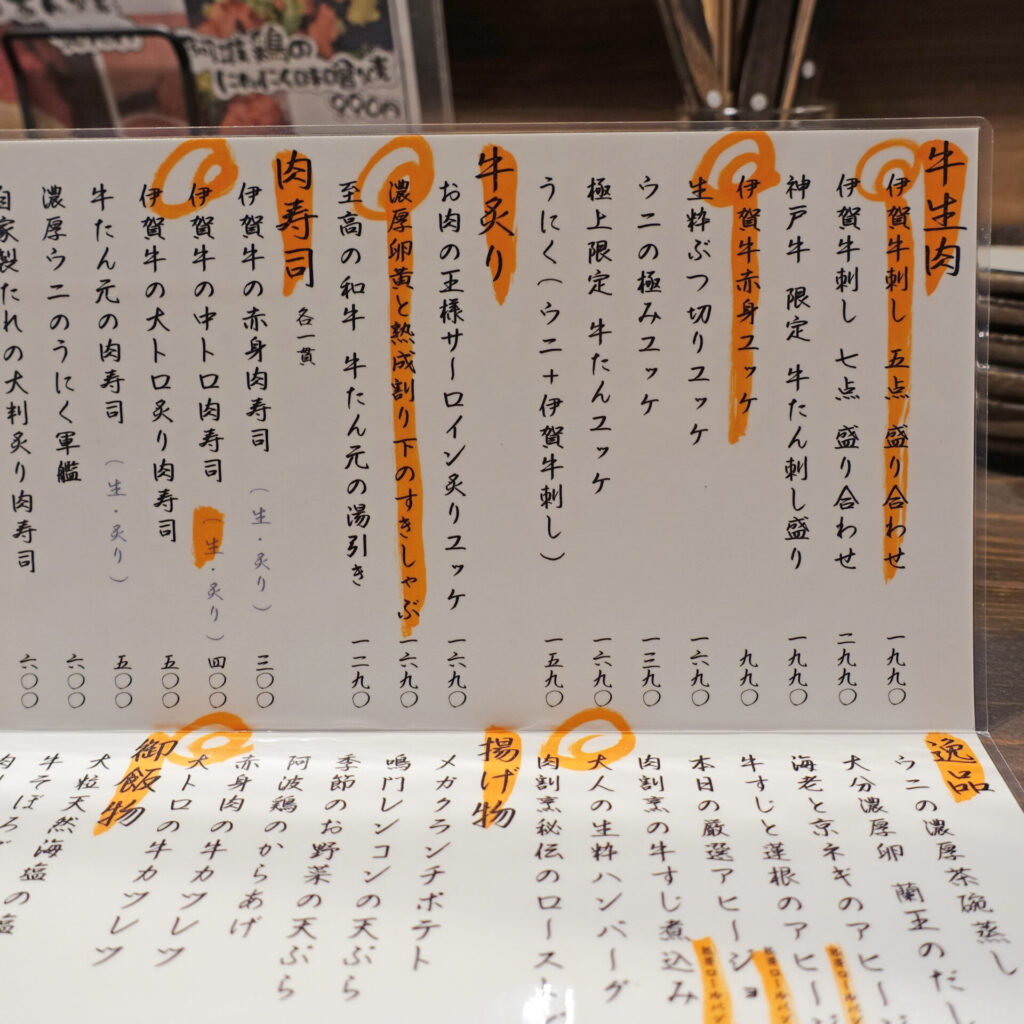 阿波鶏の
にんにく味噌焼き
990円
牛生肉
伊賀牛刺し 五点 盛り合わせ 一九九〇
伊賀牛刺し 七点 盛り合わせ 二九九〇
神戸牛 限定 牛たん刺し盛り 一九九〇
伊賀牛赤身ユッケ 九九〇
生粋ぶつ切りユッケ 一六九〇
ウニの極みユッケ 一三九〇
極上限定 牛たんユッケ 一六九〇
うにく(ウニ+伊賀牛刺し) 一五九〇
牛炙り
お肉の王様サーロイン炙りユッケ 一六九〇
濃厚卵黄と熟成割り下のすきしゃぶ 一六九〇
至高の和牛 牛たん元の湯引き 一二九〇
肉寿司 各一貫
伊賀牛の赤身肉寿司 (生・炙り) 三〇〇
伊賀牛の中トロ肉寿司 (生・炙り) 四〇〇
伊賀牛の大トロ炙り肉寿司 五〇〇
牛たん元の肉寿司 (生・炙り) 五〇〇
濃厚ウニのうにく軍艦 六〇〇
自家製たれの大判炙り肉寿司 六〇〇
逸品
ウニの濃厚茶碗蒸し
大分濃厚卵 蘭王のだし
海老と京ネギのアヒージ
牛すじと蓮根のアヒージ
本日の厳選アヒージョ
肉割烹の牛すじ煮込み
大人の生粋ハンバーグ
肉割烹秘伝のロースト
揚げ物
メガクランチポテト
鳴門レンコンの天ぷら
季節のお野菜の天ぷら
阿波鶏のからあげ
赤身肉の牛カツレツ
大トロの牛カツレツ
御飯物
大粒天然海塩の
牛そぼろ